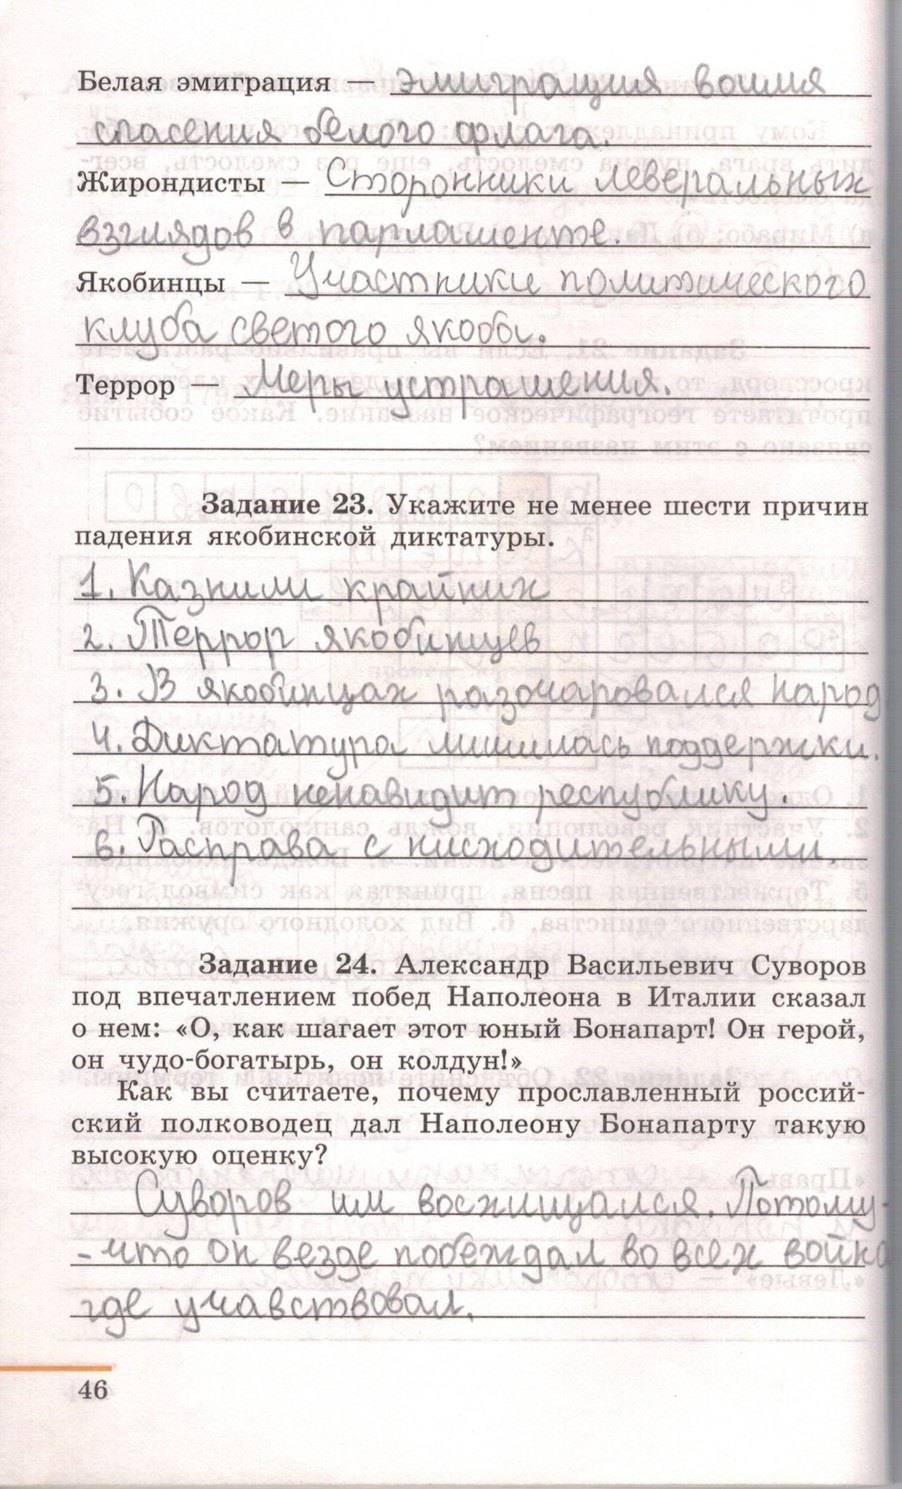 Белая эмиграция — эмиграция воимя
спасения белого флага.
Жирондисты — Сторонники леверальных
взглядов в парламенте.
Якобинцы — Участники политического
клуба светого якоби.
Террор — Меры устрашения.
Задание 23. Укажите не менее шести причин
падения якобинской диктатуры.
1. Казнили крайних
2. Террор якобинцев
3. В якобинцах разочаровался народ
4. Диктатура лишилась поддержки.
5. Народ ненавидит республику.
6. Расправа с нисходительными.
Задание 24. Александр Васильевич Суворов
под впечатлением побед Наполеона в Италии сказал
о нем: «О, как шагает этот юный Бонапарт! Он герой,
он чудо-богатырь, он колдун!»
Как вы считаете, почему прославленный россий-
ский полководец дал Наполеону Бонапарту такую
высокую оценку?
Суворов им восхищался. Потому-
-что он везде побеждал во всех война
где учавствовал.
46